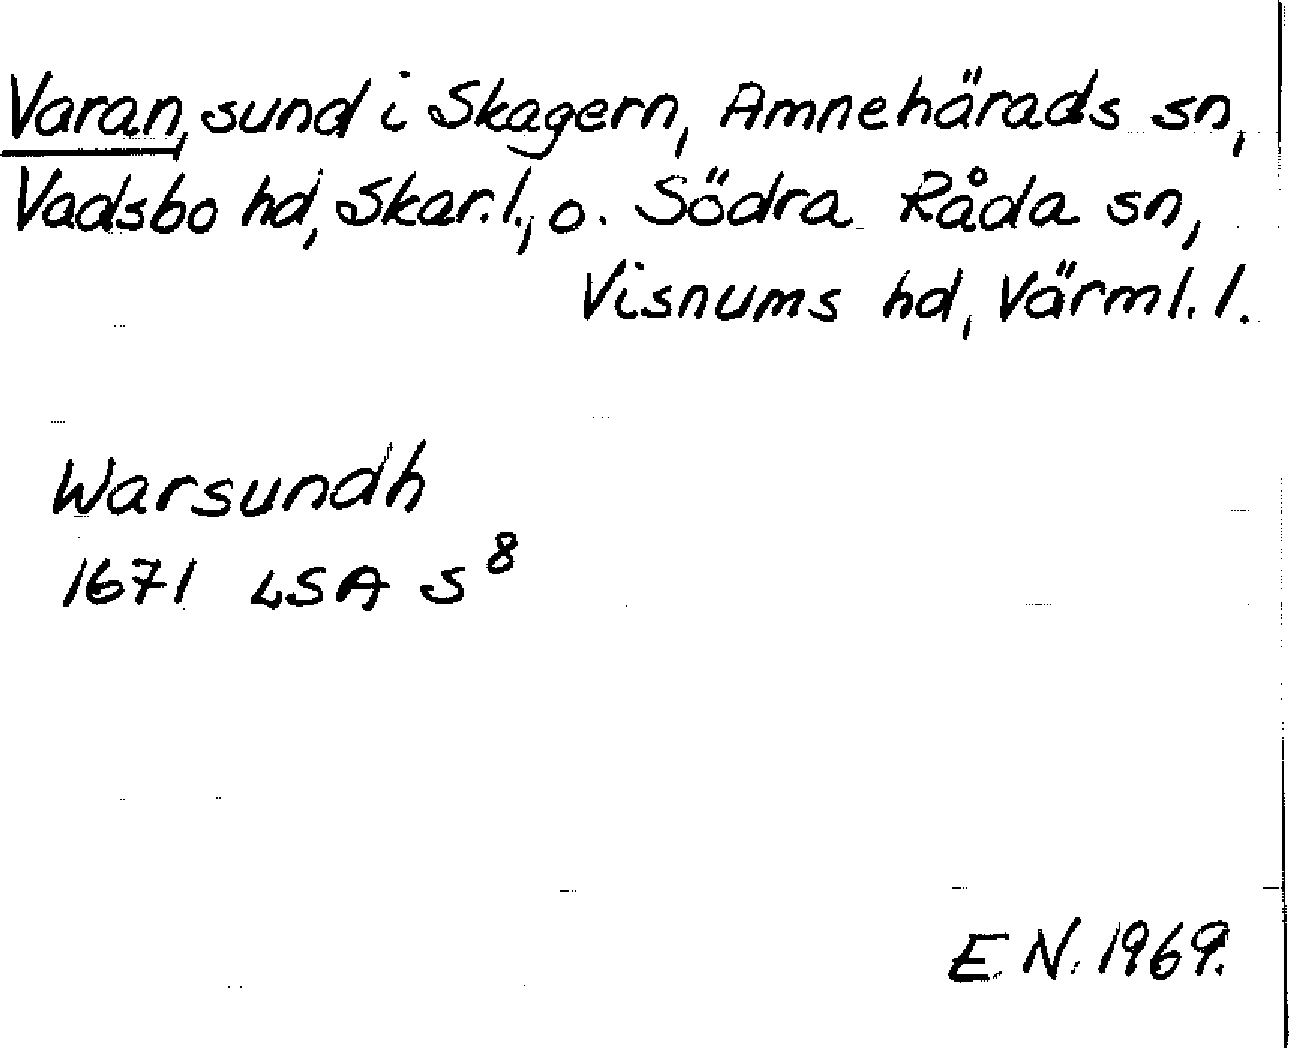 Varan, sund i Skagern, Amnehärads sn,
Vadsbo hd, Skar. l., o. Södra Råda sn,
Visnums hd, Värml. l.
Warsundh
1671 LSA S 8
E. N. 1969.